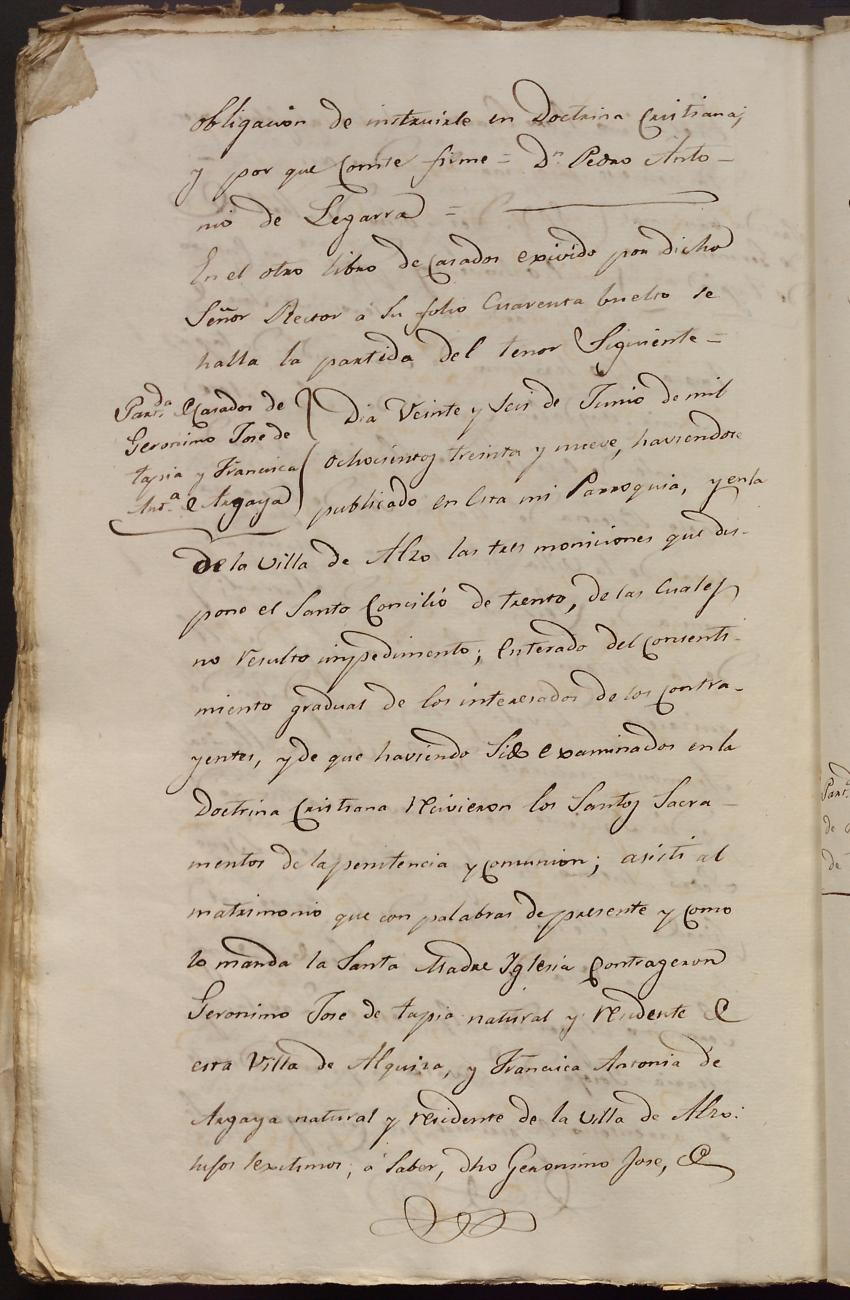 obligacion de instruirle en Doctrina Cristiana;
y por que Conste firme = Dn. Pedro Anto-
nio de Legarra =
En el otro libro de Casados exivido por dicho
Señor Rector a su folio Cuarenta buelto se
halla la partida del tenor Siguiente =
Partda. de Casados de
Geronimo Jose de
tapia y Francisca
Anta. de Argaya
Dia Veinte y Seis de Junio de mil
ochocientos treinta y nueve, haviendose
publicado en esta mi Parroquia, y en la
de la villa de Alzo las tres moniciones que dis-
pone el Santo Concilio de trento, de las Cuales
no resulto impedimento; enterado del Consenti-
miento gradual de los interesados de los Contra-
yentes, y de que haviendo Sido examinados en la
Doctrina Cristiana recivieron los Santos Sacra-
mentos de la penitencia y Comunion; asisti al
matrimonio que con palabras de presente y Como
lo manda la Santa Madre Yglesia Contrageron
Geronimo Jose de tapia natural y residente de
esta Villa de Alquiza, y Francisca Antonia de
Argaya natural y residente de la Villa de Alzo:
hijos lexitimos; a Saber, dho Geronimo Jose, de
Part.
de
de